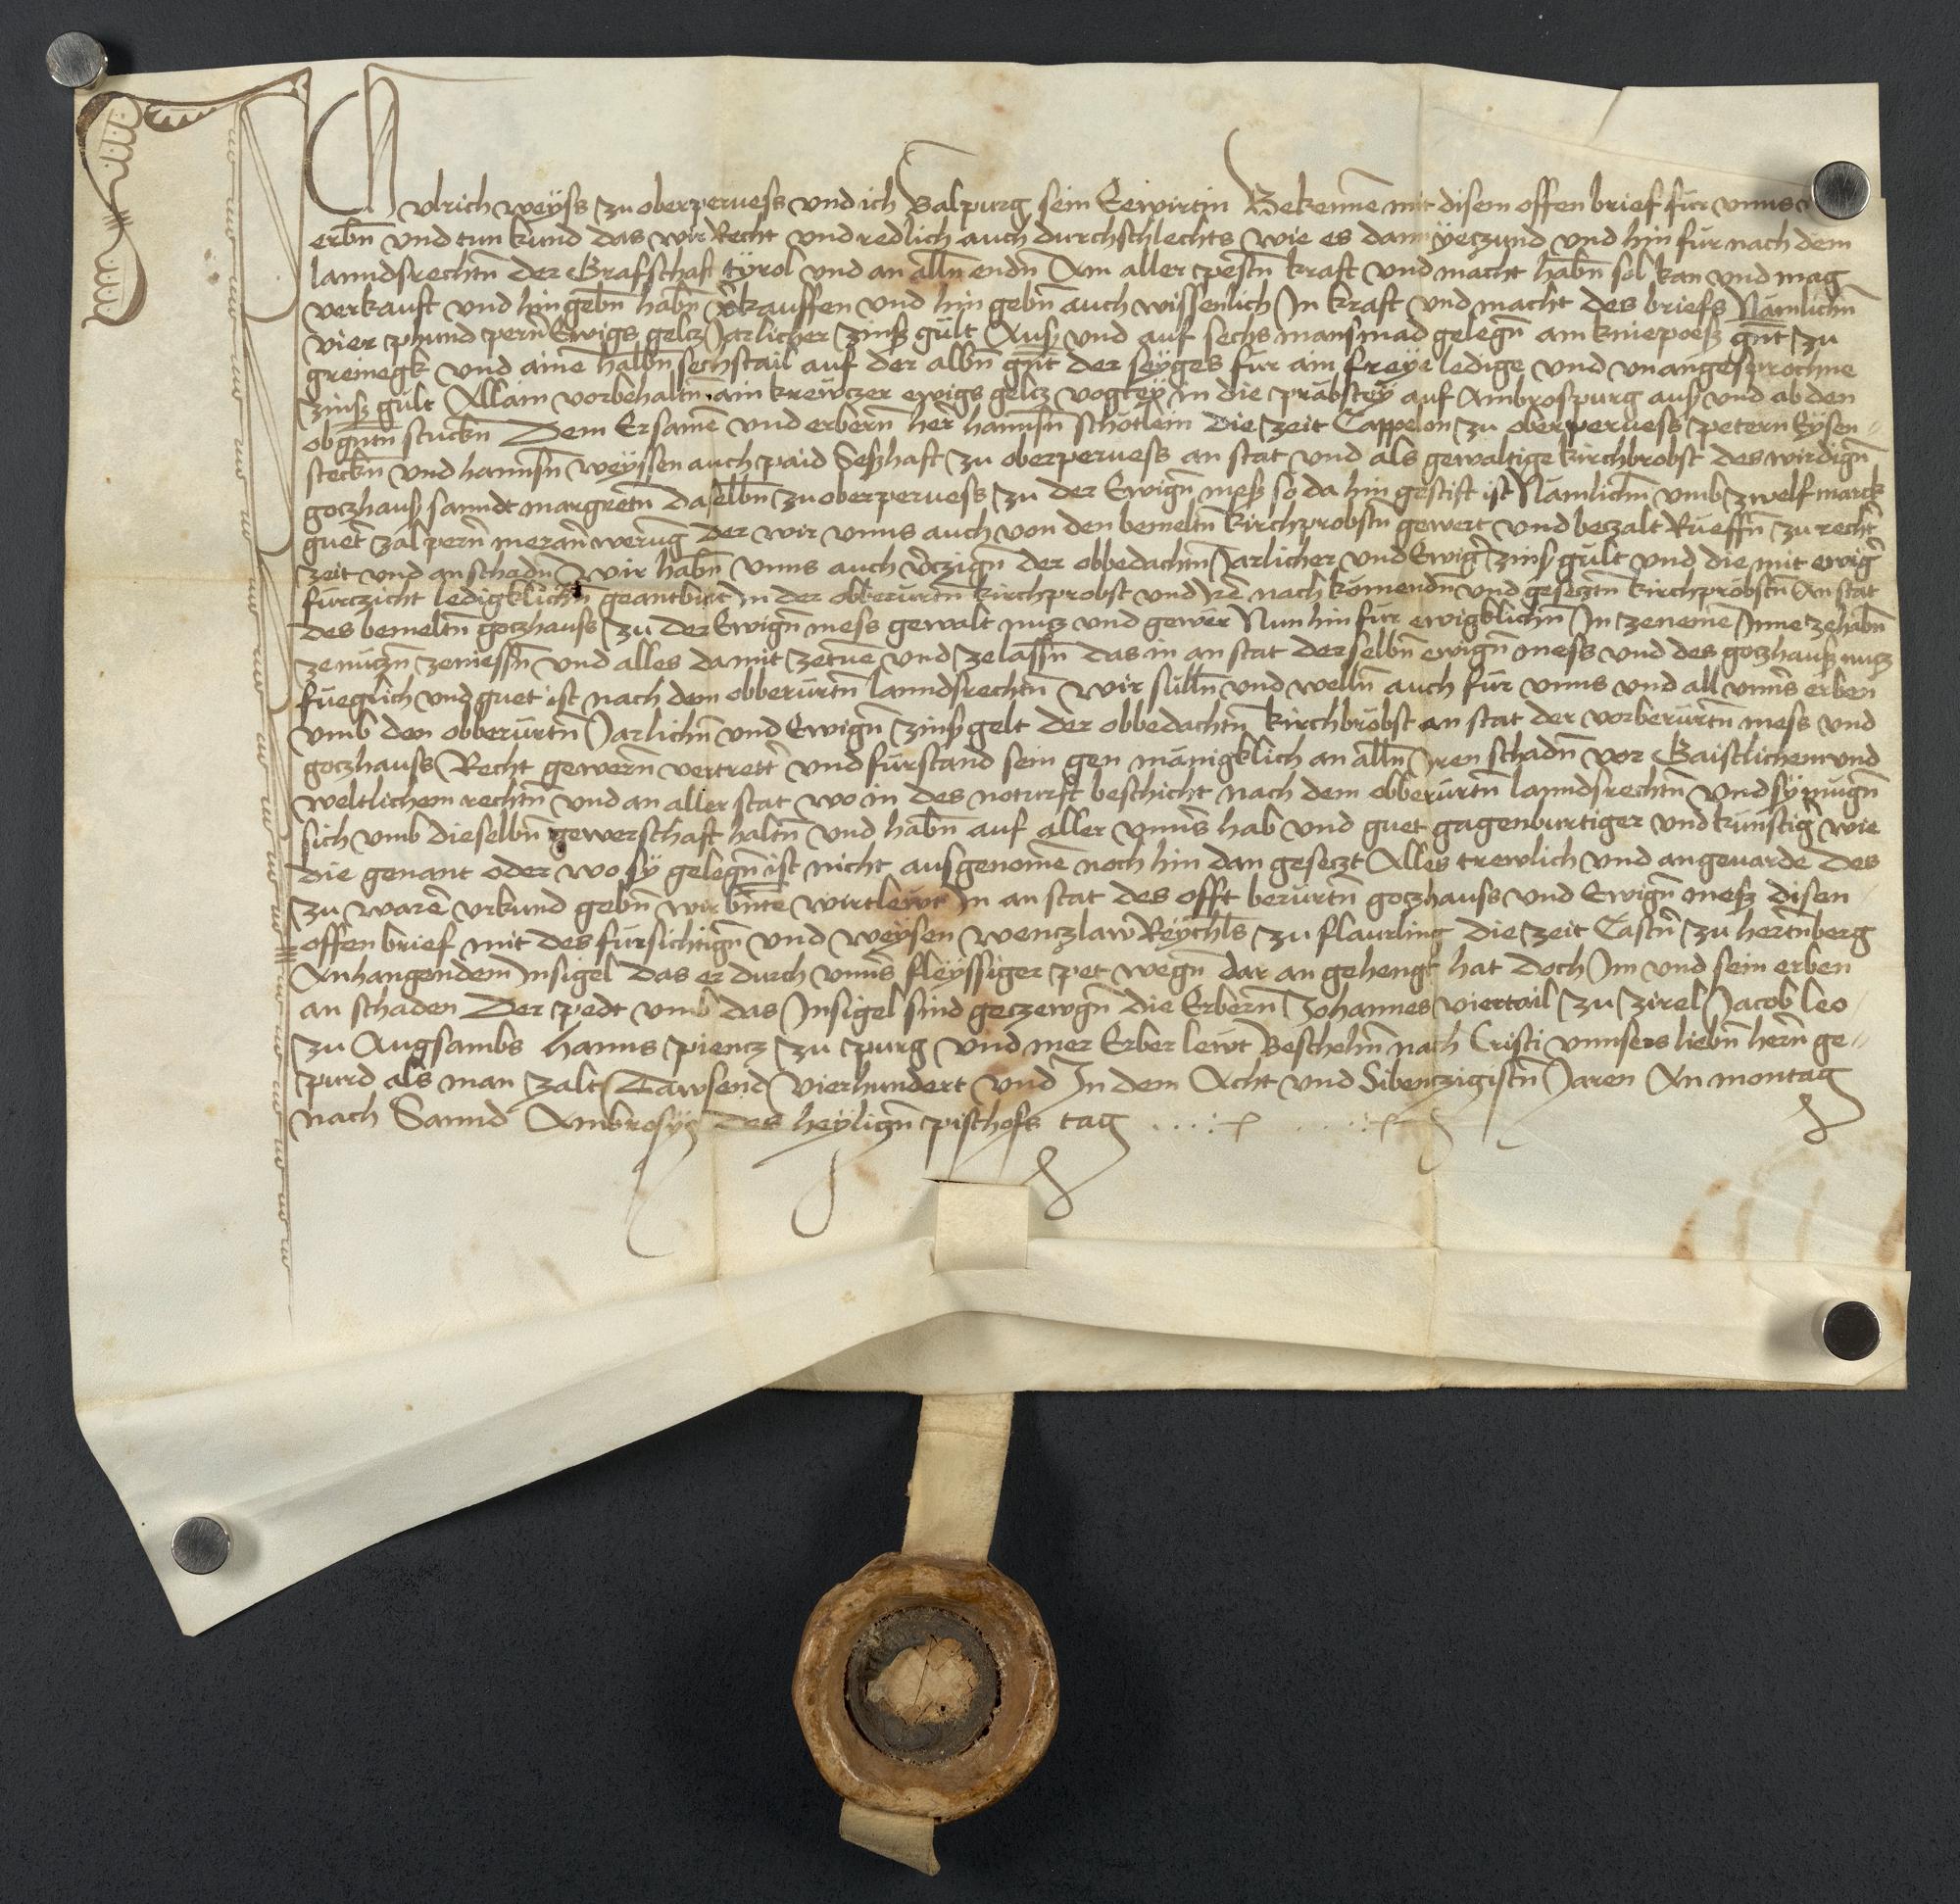 Ich vlrich weyss zu oberperuess vnd ich Walpurg sein Eewirtin Bekennē mit disem offen brief für vnns
erbn̄ vnd tun kund das wir Recht vnd redlich auch durchschlechts wie es dann yeczund vnd hin für nach dem
lanndsrechtn̄ der Grafschaft tyrol vnd an alln̄ endn̄ Am aller pestn̄ kraft vnd macht habn̄ sol kan vnd mag
verkauft vnd hin gebn̄ habn̄ v̄kauffen vnd hin gebn̄ auch wissenlich In kraft vnd macht des briefs Nämlichn̄
vier phund pern̄ Ewigs gelcz Jarlicher zinß gült Auß vnd auf sechs mansmad gelegn̄ am kniepoeß gn̄t zu
greinegk vnd ainē halbn̄ sechstail auf der albn̄ gn̄t der seyges für ain freye ledige vnd vnangesprochne
zinß gült Allain vorbehaltn̄ ain krewczer ewigs gelcz vogtey in die präbstey auf Ambrospurg auß vnd ab den
obgn̄tn̄ stuckn̄ Dem Ersamē vnd erbern̄ her̄ hannsn̄ schötlein die zeit Cappelon zu oberperuess petern Eysen-
steckn̄ vnd hannsn̄ weyssen auch paid Seßhaft zu oberperuess an stat vnd als gewaltige kirchbrobst des wirdign̄
goczhauß sanndt margretn̄ daselbn̄ zu oberperuess zu der Ewign̄ meß so da hin gestift ist Nämlichn̄ vmb zwelf marck
guet̄ zal pern̄ meran̄ werūg Der wir vnns auch von den bemeltn̄ kirchprobstn̄ gewert vnd beczalt Rueffn̄ zu recht̄
zeit vnd an schadn̄ wir habn̄ vnns auch v̄czign̄ der obbedachtn̄ Jarlicher vnd Ewiḡ zinß gült vnd die mit ewiḡ
fürczicht ledigklichn̄ geantburt In der obberürtn̄ kirchprobst vnd Irē nach komendn̄ vnd gesecztn̄ kirchpröbstn̄ An stat
des bemeltn̄ goczhauss zu der Ewign̄ mess gewalt nucz vnd gewer̄ Nun hin für ewigklichn̄ In zenemē Inne zehabn̄
zenuczn̄ zeniessn̄ vnd alles damit zetuē vnd zelassn̄ das in an stat derselbn̄ ewign̄ mess vnd des goczhauß nucz
füeglich vnd guet ist nach dem obberürtn̄ lanndsrechtn̄ wir sulln̄ vnd welln̄ auch für vnns vnd all vnns̄ erben
vmb den obberürtn̄ Jarlichn̄ vnd Ewign̄ zinß gelt der obbedachtn̄ kirchbröbst an stat der vorberürtn̄ mess vnd
goczhauss Recht gewern̄ vertrett̄ vnd fürstand sein gen mänigklich an alln̄ Iren schadn̄ vor Gaistlichem vnd
weltlichem rechtn̄ vnd an aller stat wo in des noturft beschicht nach dem obberürtn̄ lanndsrechtn̄ vnd sy mügn̄
sich vmb dieselbn̄ gewerschaft haltn̄ vnd habn̄ auf aller vnns̄ hab vnd guet gagenburtiger vnd künftiḡ wie
die genant oder wo sy gelegn̄ ist nicht ausgenomē noch hin dan geseczt Alles trewlich vnd an geuarde Des
zu warē vrkund gebn̄ wir bn̄te wirtlewt In an stat des offt berürtn̄ goczhauss vnd Ewign̄ meß disen
offen brief mit des fürsichtign̄ vnd weysen wenczlaw Reychls̄ zu flaurling die zeit Castn̄ zu hertn̄berg
Anhangendem Insigel das er durch vnns̄ fleyssiger pet wegn̄ dar an gehengt hat doch Im vnd sein erben
an schaden Der pedt vmb das Insigel sind geczewgn̄ die Erbern̄ Johannes viertail zu zirel Jacob leo
zu Augsambs hanns piencz zu purg vnd mer Erber lewt Beschehn̄ nach Cristi vnnsers liebn̄ hern̄ ge-
purd als man zalt Tawsend vierhundert vnd In dem Acht vnd Sibenczigistn̄ Jaren An montag
nach Sannd Ambrosyg des heylign̄ pischofs tag